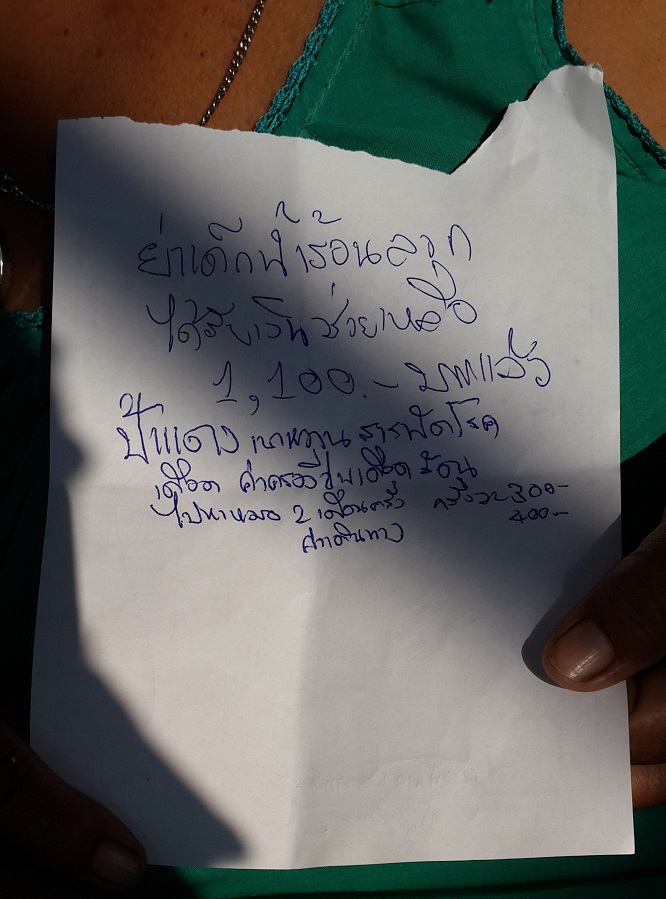 ย่าเด็กน้ำร้อนลวก
ได้รับเงินช่วยเหลือ
1,100.- บาทแล้ว
ป้าแดง เบาหวาน สารพัดโรค
เลือด ค่า เลือด
ไปหาหมอ 2 เดือนครั้ง ครั้งละ 300-
400-
ค่าเดินทาง